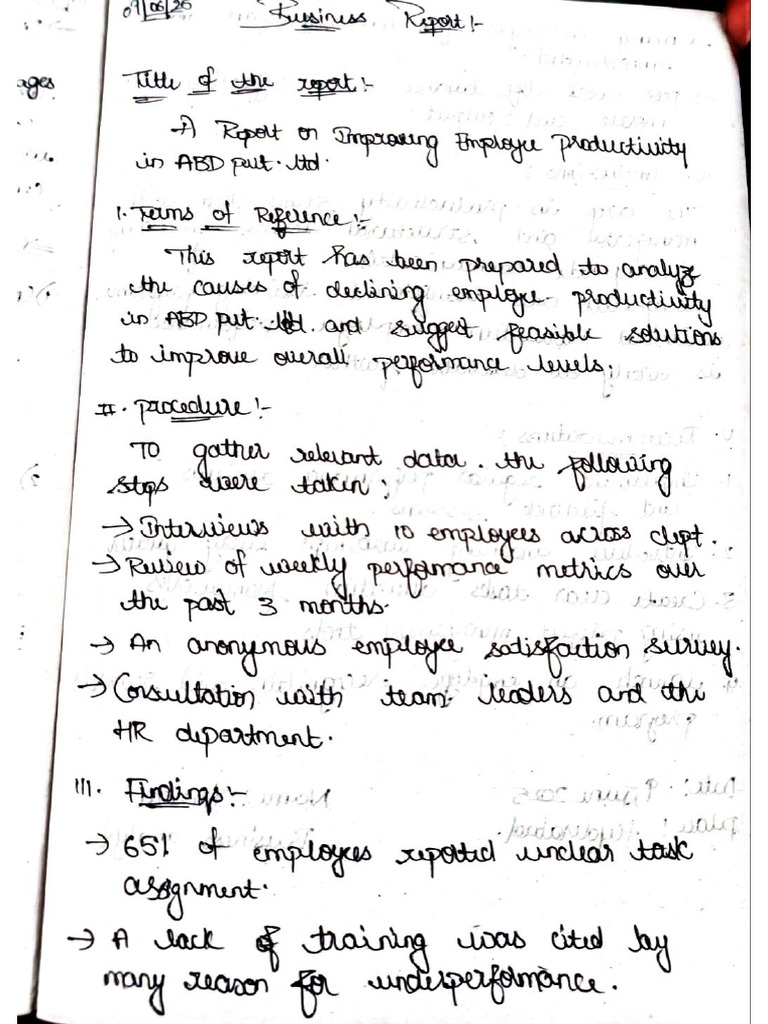 09/06/25 Business Report:-
ages
Title of the report:-
A Report on Improving Employee productivity
in ABD put. ltd.
I. Terms of Reference:-
This report has been prepared to analyze
the causes of declining employee productivity
in ABD put. ltd. and suggest feasible solutions
to improve overall performance levels.
II. procedure:-
To gather relevant data. the following
steps were taken:
→ Interviews with 10 employees across dept.
→ Review of weekly performance metrics over
the past 3 months.
→ An anonymous employee satisfaction survey.
→ Consultation with team leaders and the
HR department.
III. Findings:-
→ 65% of employees reported unclear task
assignment.
→ A lack of training was cited by
many reason for underperformance.